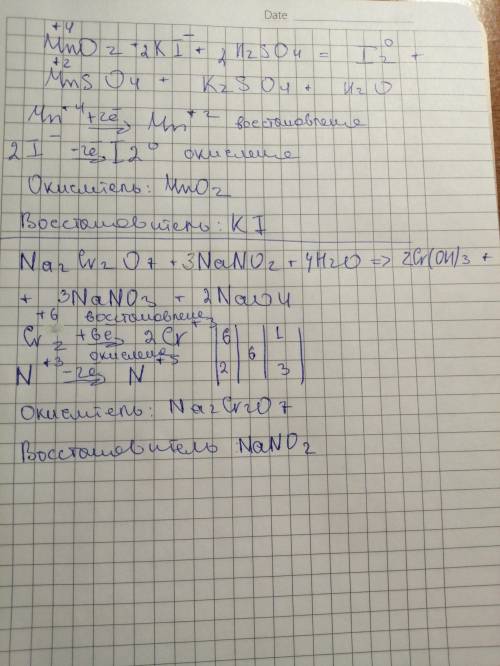 Date
+4 - 0
MnO2 + 2KI + 2H2SO4 = I2 +
+2
MnSO4 + K2SO4 + H2O
Mn+4 +2e→ Mn+2 восстановление
2I- -2e→ I2 0 окисление
Окислитель: MnO2
Восстановитель: KI
Na2Cr2O7 + 3NaNO2 + 4H2O => 2Cr(OH)3 +
+ 3NaNO3 + 2NaOH
+6 восстановление
Cr2 +6e→ 2Cr+3 | 6 | 6 | 1
окисление
N+3 -2e→ N+5 | 2 | 3
Окислитель: Na2Cr2O7
Восстановитель NaNO2